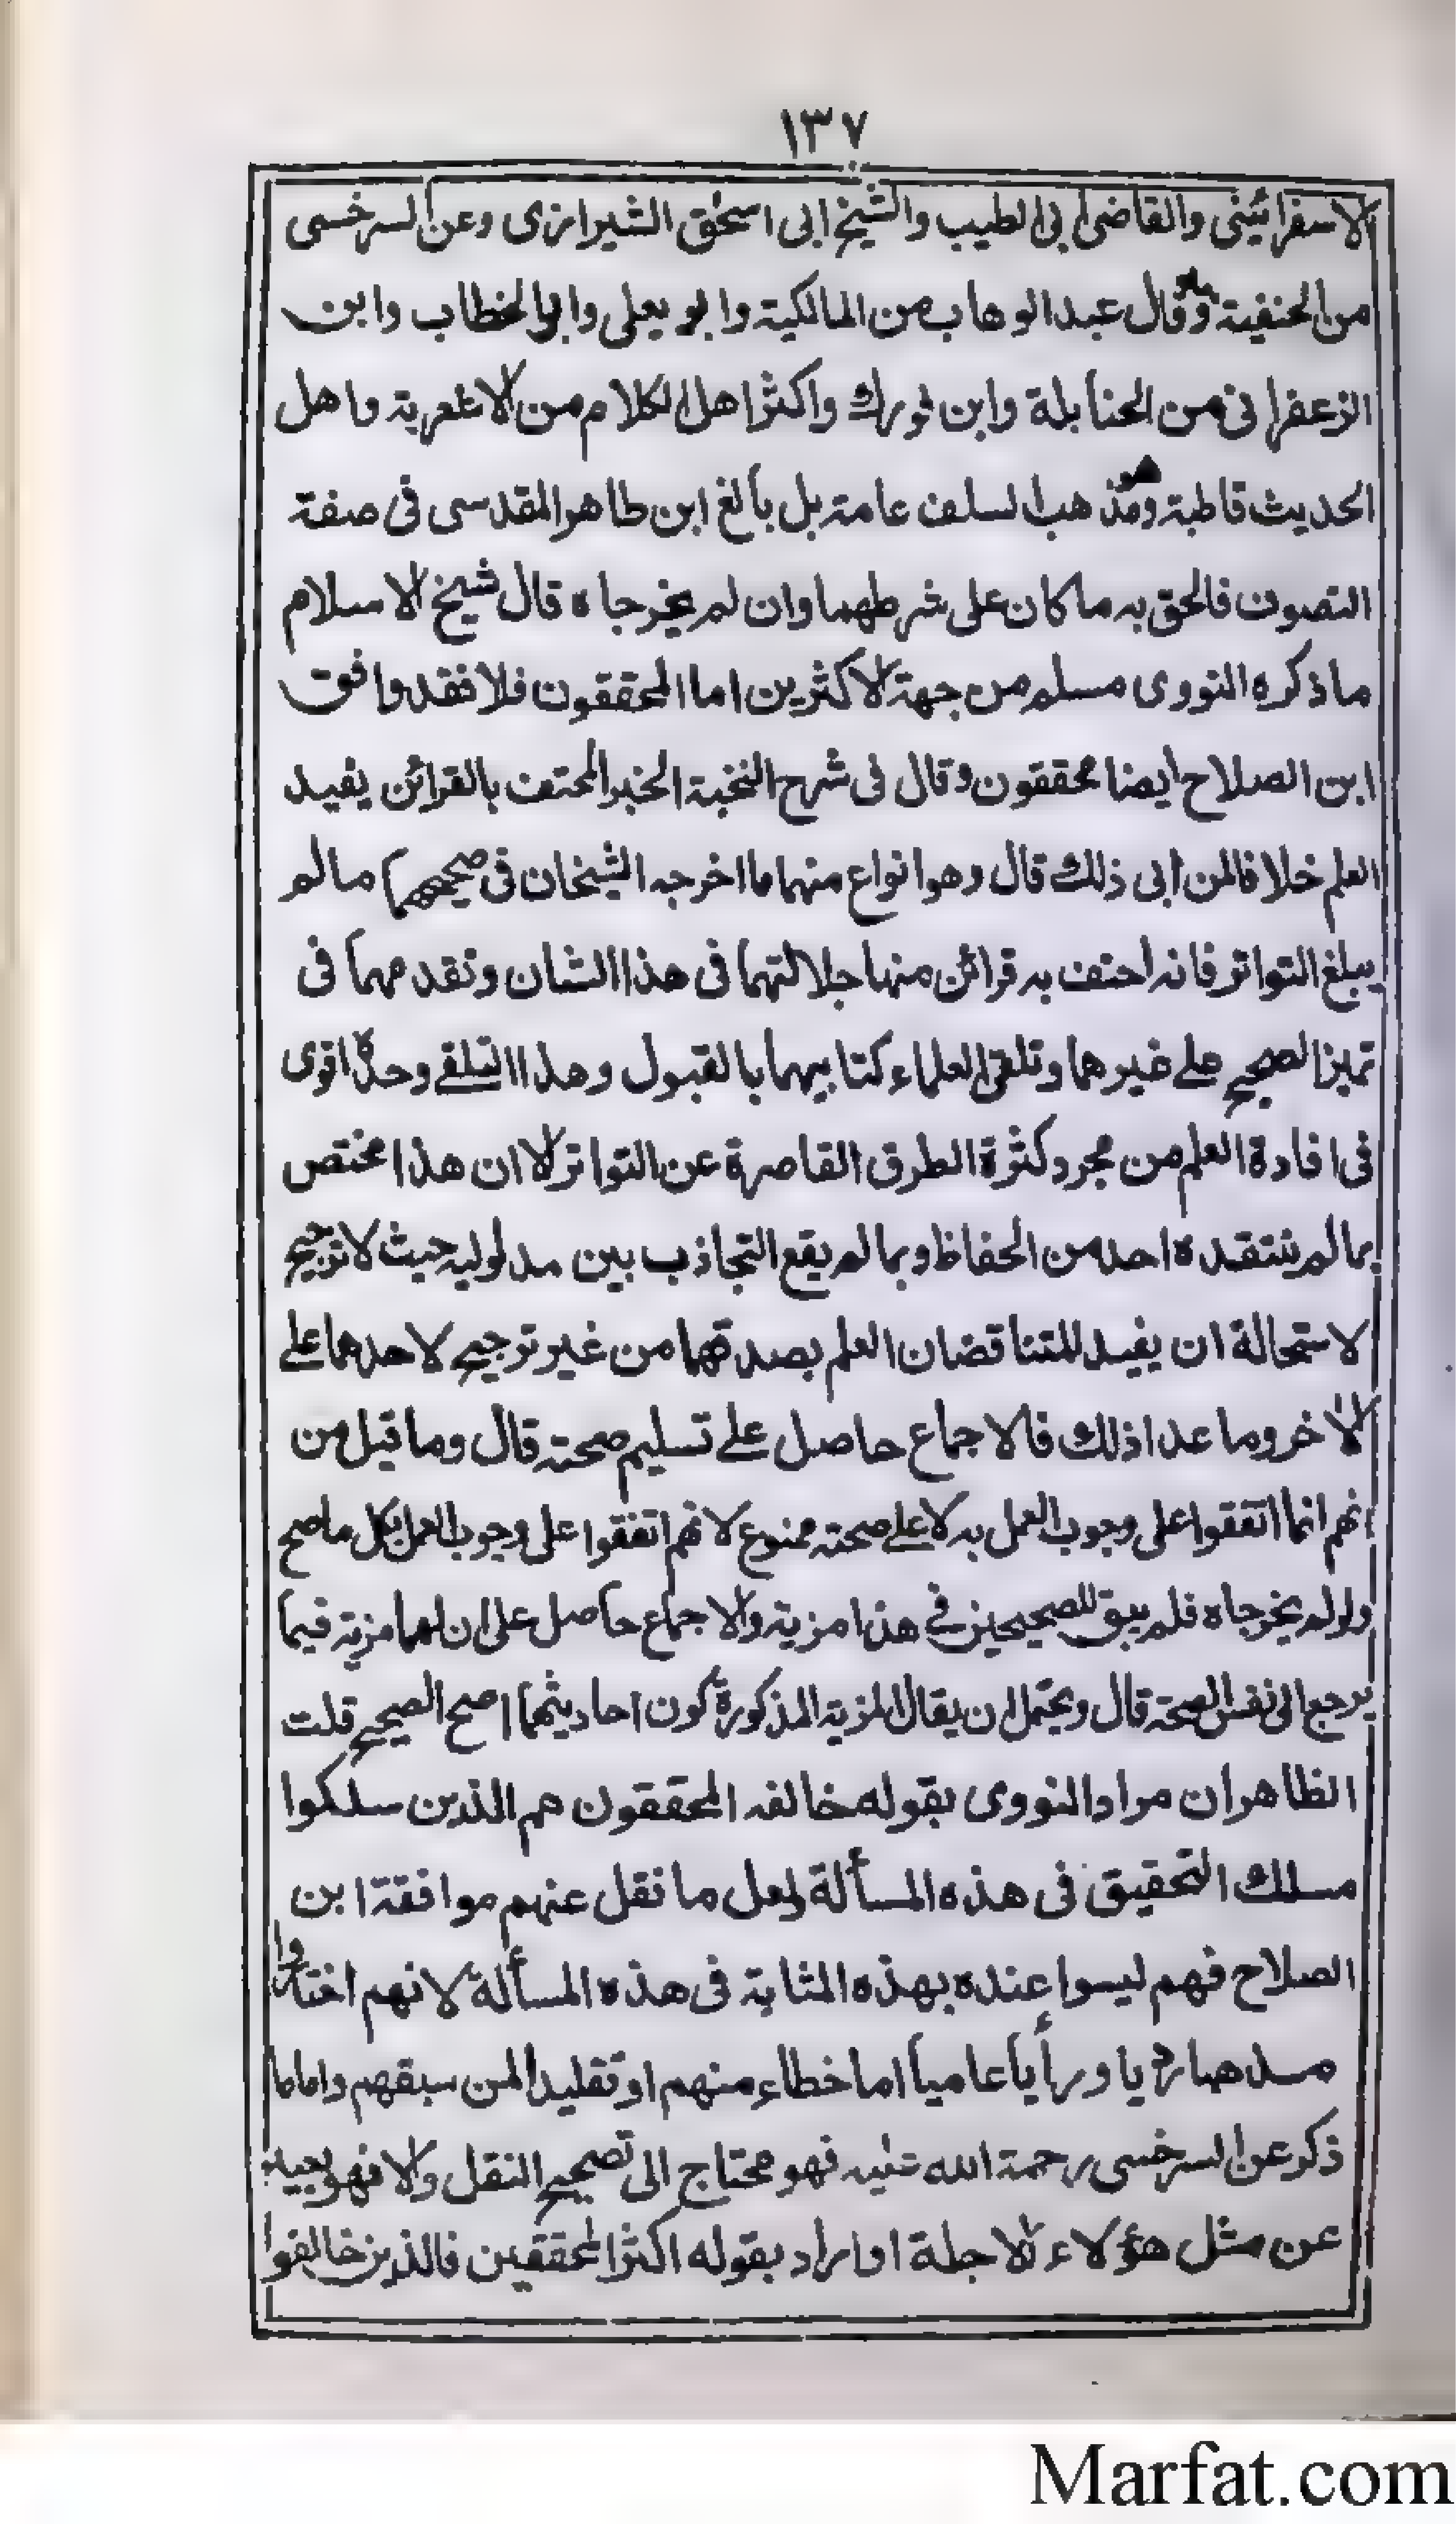 ١٣٧
الاسفرائيني والقاضي ابي الطيب والشيخ ابي اسحٰق الشيرازي وعن السرخسي
من الحنفية وقال عبد الوهاب من المالكية وابو يعلى وابو الخطاب وابن
الزعفراني من الحنابلة وابن فورك واكثر اهل الكلام من الاشعرية واهل
الحديث قاطبة ومذهب السلف عامة بل بالغ ابن طاهر المقدسي في صفة
التصوف فالحق به ما كان على شرطهما وان لم يخرجاه قال شيخ الاسلام
ما ذكره النووي مسلم من جهة الاكثرين اما المحققون فلا فقد وافق
ابن الصلاح ايضا محققون وقال في شرح النخبة الخبر المحتف بالقرائن يفيد
العلم خلافا لمن أبى ذلك قال وهو انواع منها ما اخرجه الشيخان في صحيحهما مالم
يبلغ التواتر فانه احتف به قرائن منها جلالتهما في هذا الشان وتقدمهما في
تميز الصحيح على غيرهما وتلقي العلماء كتابيهما بالقبول وهذا التلقي وحده اقوى
في افادة العلم من مجرد كثرة الطرق القاصرة عن التواتر الا ان هذا مختص
بما لم ينتقده احد من الحفاظ وبما لم يقع التجاذب بين مدلوليه حيث لا ترجيح
لاستحالة ان يفيد المتناقضان العلم بصدقهما من غير ترجيح لاحدهما على
الاٰخر وما عدا ذلك فالاجماع حاصل على تسليم صحته قال وما قيل من
انهم انما اتفقوا على وجوب العمل به لا على صحته ممنوع لانهم اتفقوا على وجوب العمل بكل ما صح
ولو لم يخرجاه فلم يبق للصحيحين في هذا مزية والاجماع حاصل على ان لهما مزية فيما
يرجع الى نفس الصحة قال ويحتمل ان يقال المزية المذكورة كون احاديثهما اصح الصحيح قلت
الظاهر ان مراد النووي بقوله خالفه المحققون هم الذين سلكوا
مسلك التحقيق في هذه المسألة ولعل ما نقل عنهم موافقة ابن
الصلاح فهم ليسوا عنده بهذه المثابة في هذه المسألة لانهم اختاروا
مذهبا رأيا عاميا اما خطاء منهم او تقليدا لمن سبقهم واما ما
ذكر عن السرخسي رحمة الله عليه فهو محتاج الى تصحيح النقل والا فهو بعيد
عن مثل هؤلاء الاجلة او اراد بقوله اكثر المحققين فالذين خالفوا
Marfat.com